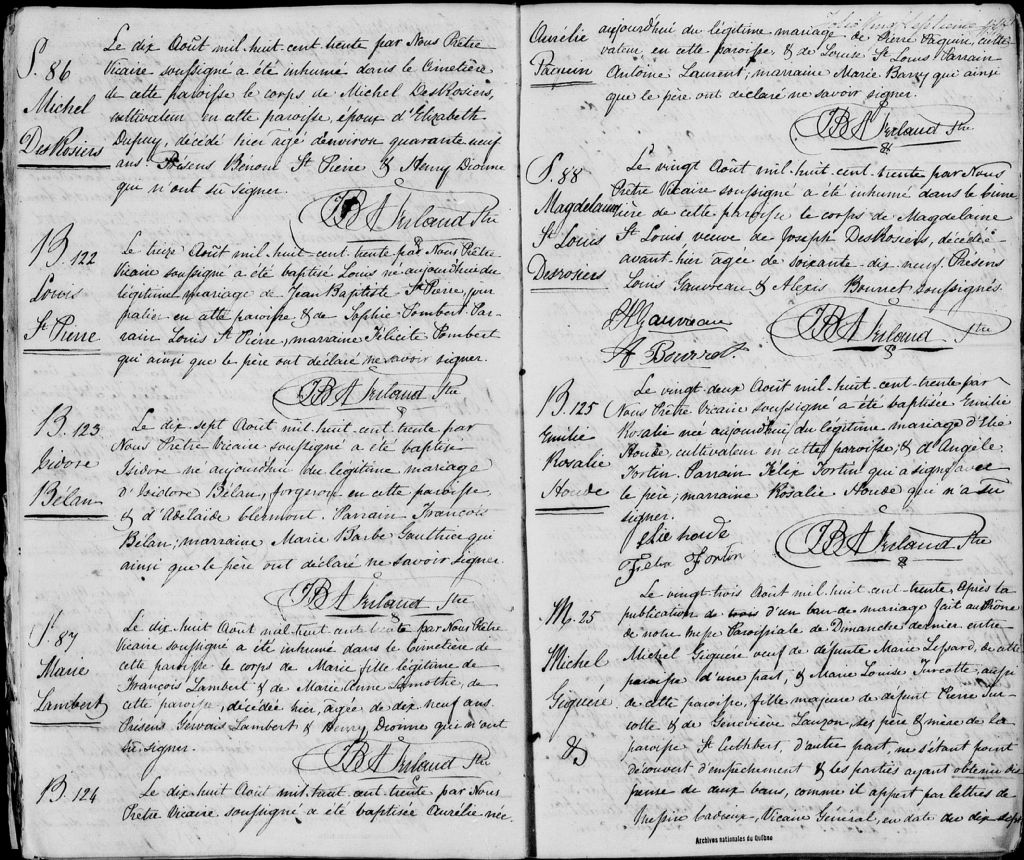 S. 86
Michel
DesRosiers
Le dix Août mil-huit-cent-trente par Nous Prêtre
Vicaire soussigné a été inhumé dans le Cimetière
de cette paroisse le corps de Michel DesRosiers,
cultivateur en cette paroisse, époux d'Elizabeth
Dupuy, décédé hier agé d'environ quarante-neuf
ans. Présens Benoni St Pierre & Henry Dionne
qui n'ont su signer.
JBA Ireland Ptre
B. 122
Louis
St Pierre
Le treize Août mil-huit-cent-trente par Nous Prêtre
Vicaire soussigné a été baptisé Louis né aujourd'hui du
légitime mariage de Jean Baptiste St Pierre, jour
nalier en cette paroisse, & de Sophie Lombert. Par
rain Louis St Pierre, marraine Félicité Lombert
qui ainsi que le père ont déclaré ne savoir signer.
JBA Ireland Ptre
B. 123
Isidore
Bélan
Le dix-sept Août mil-huit-cent-trente par
Nous Prêtre Vicaire soussigné a été baptisé
Isidore né aujourdhui du légitime mariage
d'Isidore Bélan, forgeron en cette paroisse,
& d'Adélaide Clermont. Parrain François
Bélan; marraine Marie Barbe Gauthier qui
ainsi que le père ont déclaré ne savoir signer.
JBA Ireland Ptre
S. 87
Marie
Lambert
Le dix-huit Août mil-huit-cent-trente par Nous Prêtre
Vicaire soussigné a été inhumé dans le Cimetière de
cette paroisse le corps de Marie fille légitime de
François Lambert & de Marie Anne Lamothe, de
cette paroisse, décédée hier, agée de dix-neuf ans.
Présens Gervais Lambert & Henry Dionne qui n'ont
su signer.
JBA Ireland Ptre
B. 124
Le dix-huit Août mil-huit-cent-trente, par Nous
Prêtre Vicaire soussigné a été baptisée Aurélie née
Aurélie
Paquin
aujourd'hui du légitime mariage de Pierre Paquin, culti
vateur en cette paroisse, & de Louise St Louis. Parrain
Antoine Laurent; marraine Marie Baril qui ainsi
que le père ont déclaré ne savoir signer.
JBA Ireland Ptre
S. 88
Magdelaine
St Louis
Desrosiers
Le vingt Août mil-huit-cent-trente par Nous
Prêtre Vicaire soussigné a été inhumé dans le Cime
tière de cette paroisse le corps de Magdelaine
St Louis veuve de Joseph DesRosiers, décédée
avant-hier agée de soixante-dix-neuf. Présens
Louis Gauvreau & Alexis Bourret soussignés.
Gauvreau
A Bourret
JBA Ireland Ptre
B. 125
Emilie
Rosalie
Houde
Le vingt-deux Août mil-huit-cent-trente par
Nous Prêtre Vicaire soussigné a été baptisée Emilie
Rosalie née aujourd'hui du légitime mariage d'Elie
Houde, cultivateur en cette paroisse, & d'Angèle
Fortin. Parrain Félix Fortin qui a signé avec
le père; marraine Rosalie Houde qui n'a su
signer.
Elie houde
Felix Fortin
JBA Ireland Ptre
M. 25
Michel
Giguère
&
Le vingt-trois Août mil-huit-cent-trente, après la
publication de trois d'un ban de mariage fait au Prône
de notre Messe Paroissiale de Dimanche dernier entre
Michel Giguère veuf de défunte Marie Lessard, de cette
paroisse d'une part, & Marie Louise Turcotte, aussi
de cette paroisse, fille majeure de défunt Pierre Tur
cotte & de Geneviève Lauzon, ses père & mère de la
paroisse St Cuthbert, d'autre part, ne s'étant point
découvert d'empêchement & les parties ayant obtenu dis
pense de deux bans, comme il appert par lettres de
Messire Cadieux, Vicaire Général, en date du dix-sept
Archives nationales du Québec